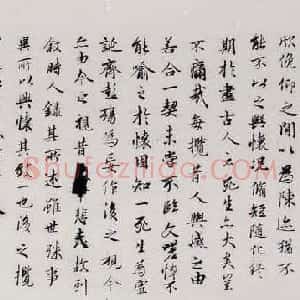 欣俛仰之間以為陳迹猶不
能不以之興懷況脩短隨化終
期於盡古人云死生亦大矣豈
不痛哉每攬昔人興感之由
若合一契未嘗不臨文嗟悼不
能喻之於懷固知一死生為虛
誕齊彭殤為妄作後之視今
亦由今之視昔悲夫故列
敘時人錄其所述雖世殊事
異所以興懷其致一也後之攬